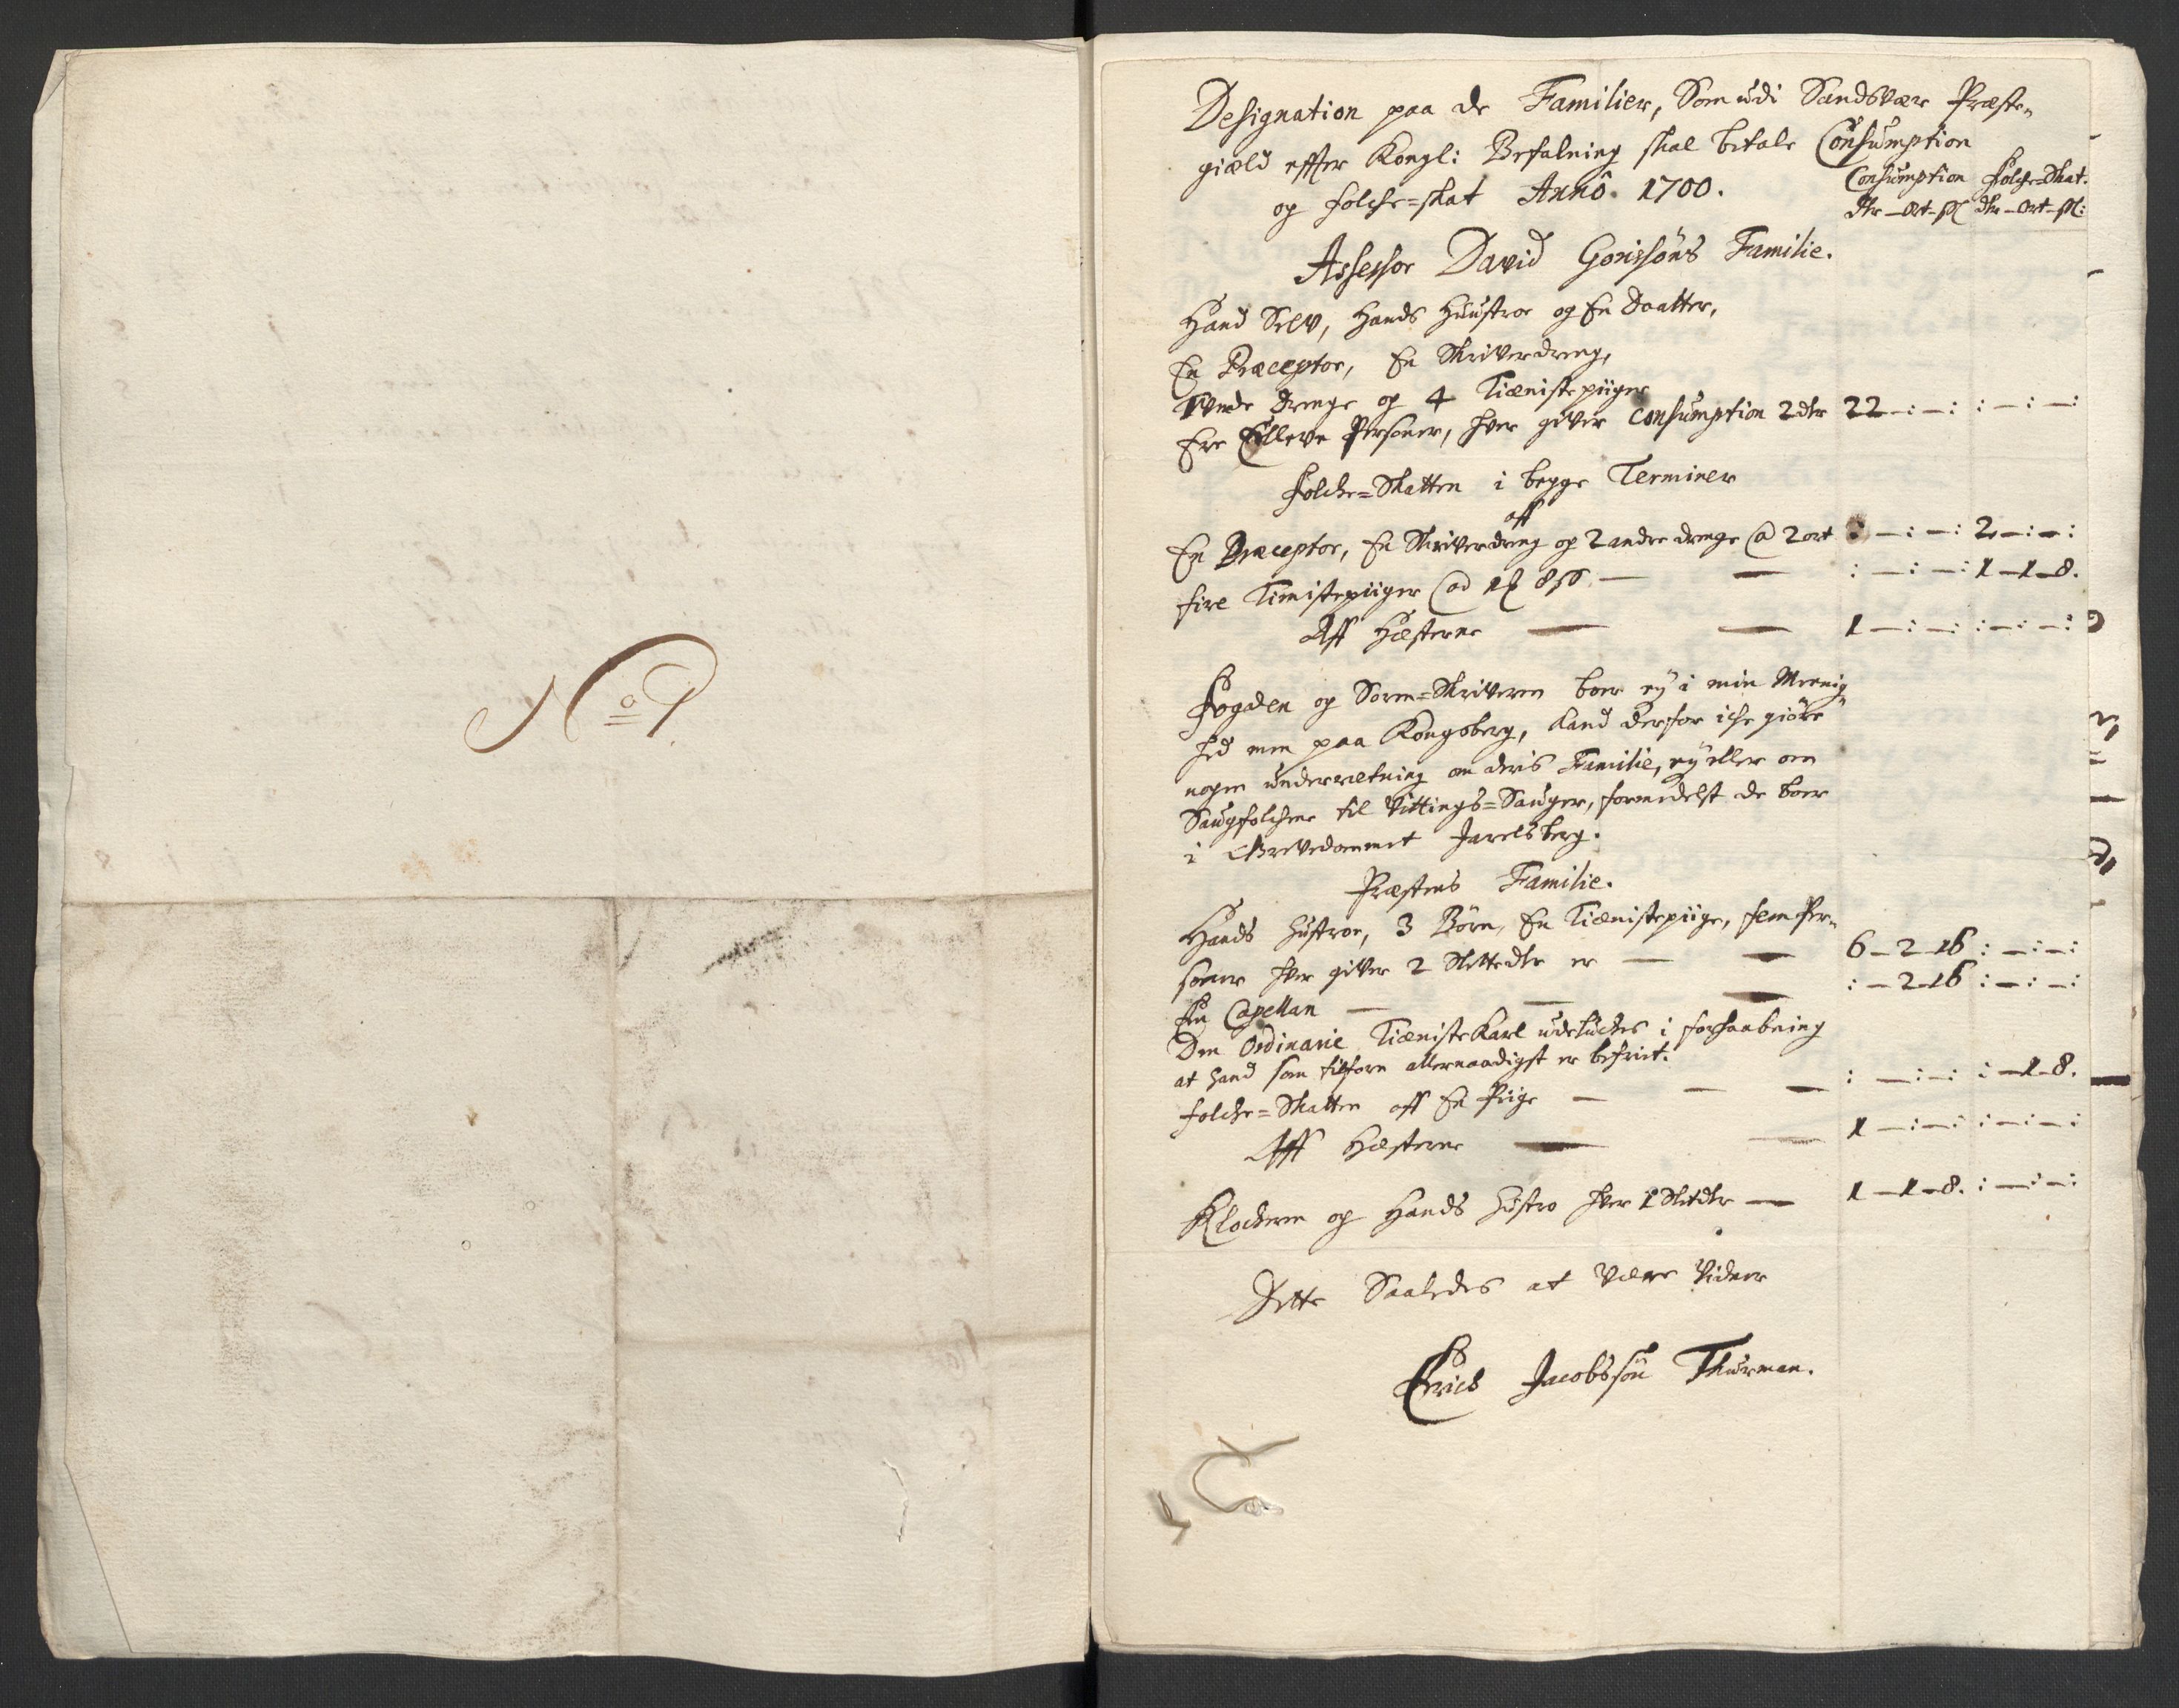 No 1.
Designation paa de Familier, Som udi Sandsvær Præste-
giæld effter Kongl: Befalning skal betale Consumption
og folche=skat Annô 1700.
Consumption folche=Skat.
dlr – Ort – sk dlr – ort – sk:
Assessor David Gorissöns Familie.
Hand Selv, Hands Huustroe og En Daatter,
En Præceptor, En Skriverdreng,
Tvende Drenge og 4 Tiænistepiiger
Ere Elleve Personer, hver giver Consumption 2 dlr 22 – : – : : – : – :
Folche=Skatten i begge Terminer
aff
En Præceptor, En Skriverdreng og 2 andre drenge @ 2 ort : – : – : 2 – : – :
fire Tienistepiiger @ 1 8 s – – : – : – : 1 – 1 – 8.
Aff Hesterne – – 1 – : – : : – : – :
Fogden og Soren=Skriveren boer ey i min Meenig-
hed men paa Kongsberg, kand derfor iche giöre
nogen underretning om deris Familie, ey eller om
Saugfolchene til Vittings=Sauger, formedelst de boer
i Grevedommet Jarelsberg.
Præstens Familie.
Hands Hustroe, 3 Börn, En Tiænistepiige, fem Per-
soner hver giver 2 Slettedlr er – – 6 – 2 – 16 : – : – :
En Capellan – – – : – 2 – 16 : – : – :
Den Ordinarie TiænisteKarl udeluches i forhaabning
at hand som tilforn allernaadigst er befriet.
folche=Skatten aff En Piige – – – : – : – : : – 1 – 8.
Aff Hesterne – – 1 – : – : : – : – :
Klocheren og Hands Hustro hver 1 Sletdlr – 1 – 1 – 8. : – : – :
Dette Saaledes at være Vidner
Erich Jacobssön Thurman.